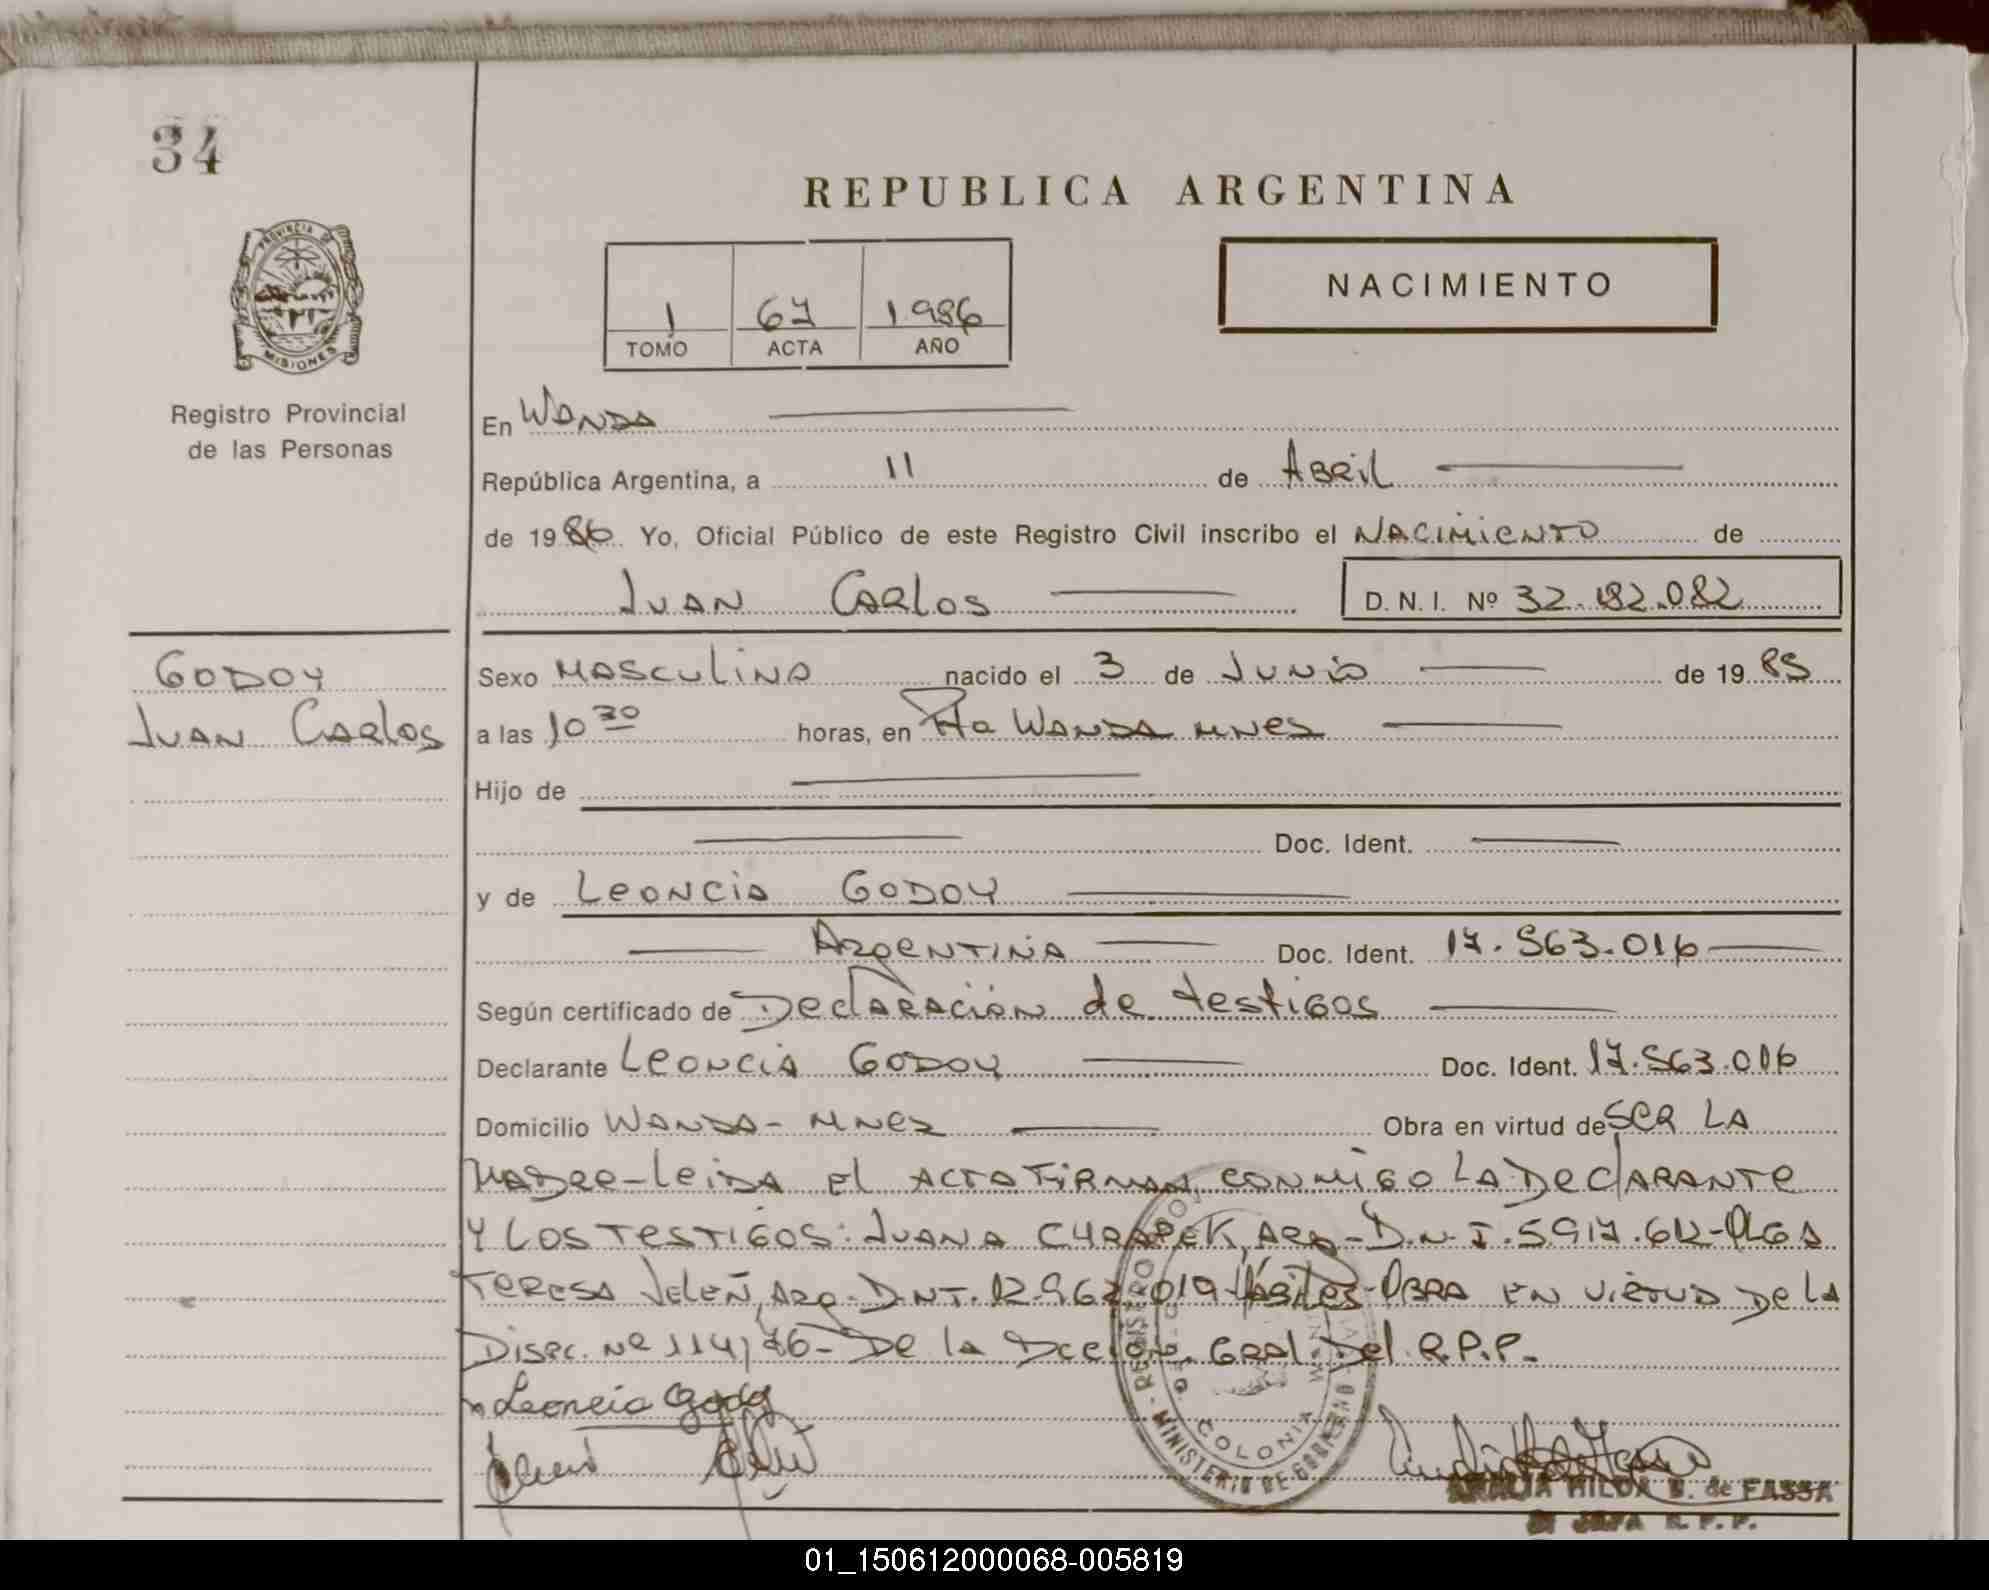 34
REPUBLICA ARGENTINA
PROVINCIA DE
MISIONES
Registro Provincial
de las Personas
1 67 1986
TOMO ACTA AÑO
NACIMIENTO
En WANDA
República Argentina, a 11 de Abril
de 1986 Yo, Oficial Público de este Registro Civil inscribo el NACIMIENTO de
JUAN CARLOS D. N. I. Nº 32.182.082
GODOY
JUAN CARLOS
Sexo MASCULINO nacido el 3 de JUNIO de 1985
a las 10 30 horas, en Pto WANDA MNES
Hijo de
Doc. Ident.
y de LEONCIA GODOY
ARGENTINA Doc. Ident. 17.563.016
Según certificado de DeclARACIÓN de testigos
Declarante LEONCIA GODOY Doc. Ident. 17.563.016
Domicilio WANDA - MNES Obra en virtud de SER LA
MADRE - LEIDA El ACTA FIRMAN CONMIGO LA DEClARANTE
Y LOS TESTIGOS: JUANA ARG - D.N.I. OLGA
TERESA ARG. D.N.I. 12.962.019 - HÁBILES - OBRA EN VIRTUD DE LA
DISPC. Nº 114/76 - De la GRAL Del R.P.P.
Leoncia Godoy
REGISTRO
COLONIA
MINISTERIO DE GOBIERNO
AMALIA HILDA B. de FASSA
JEFA R.P.P.
01_150612000068-005819